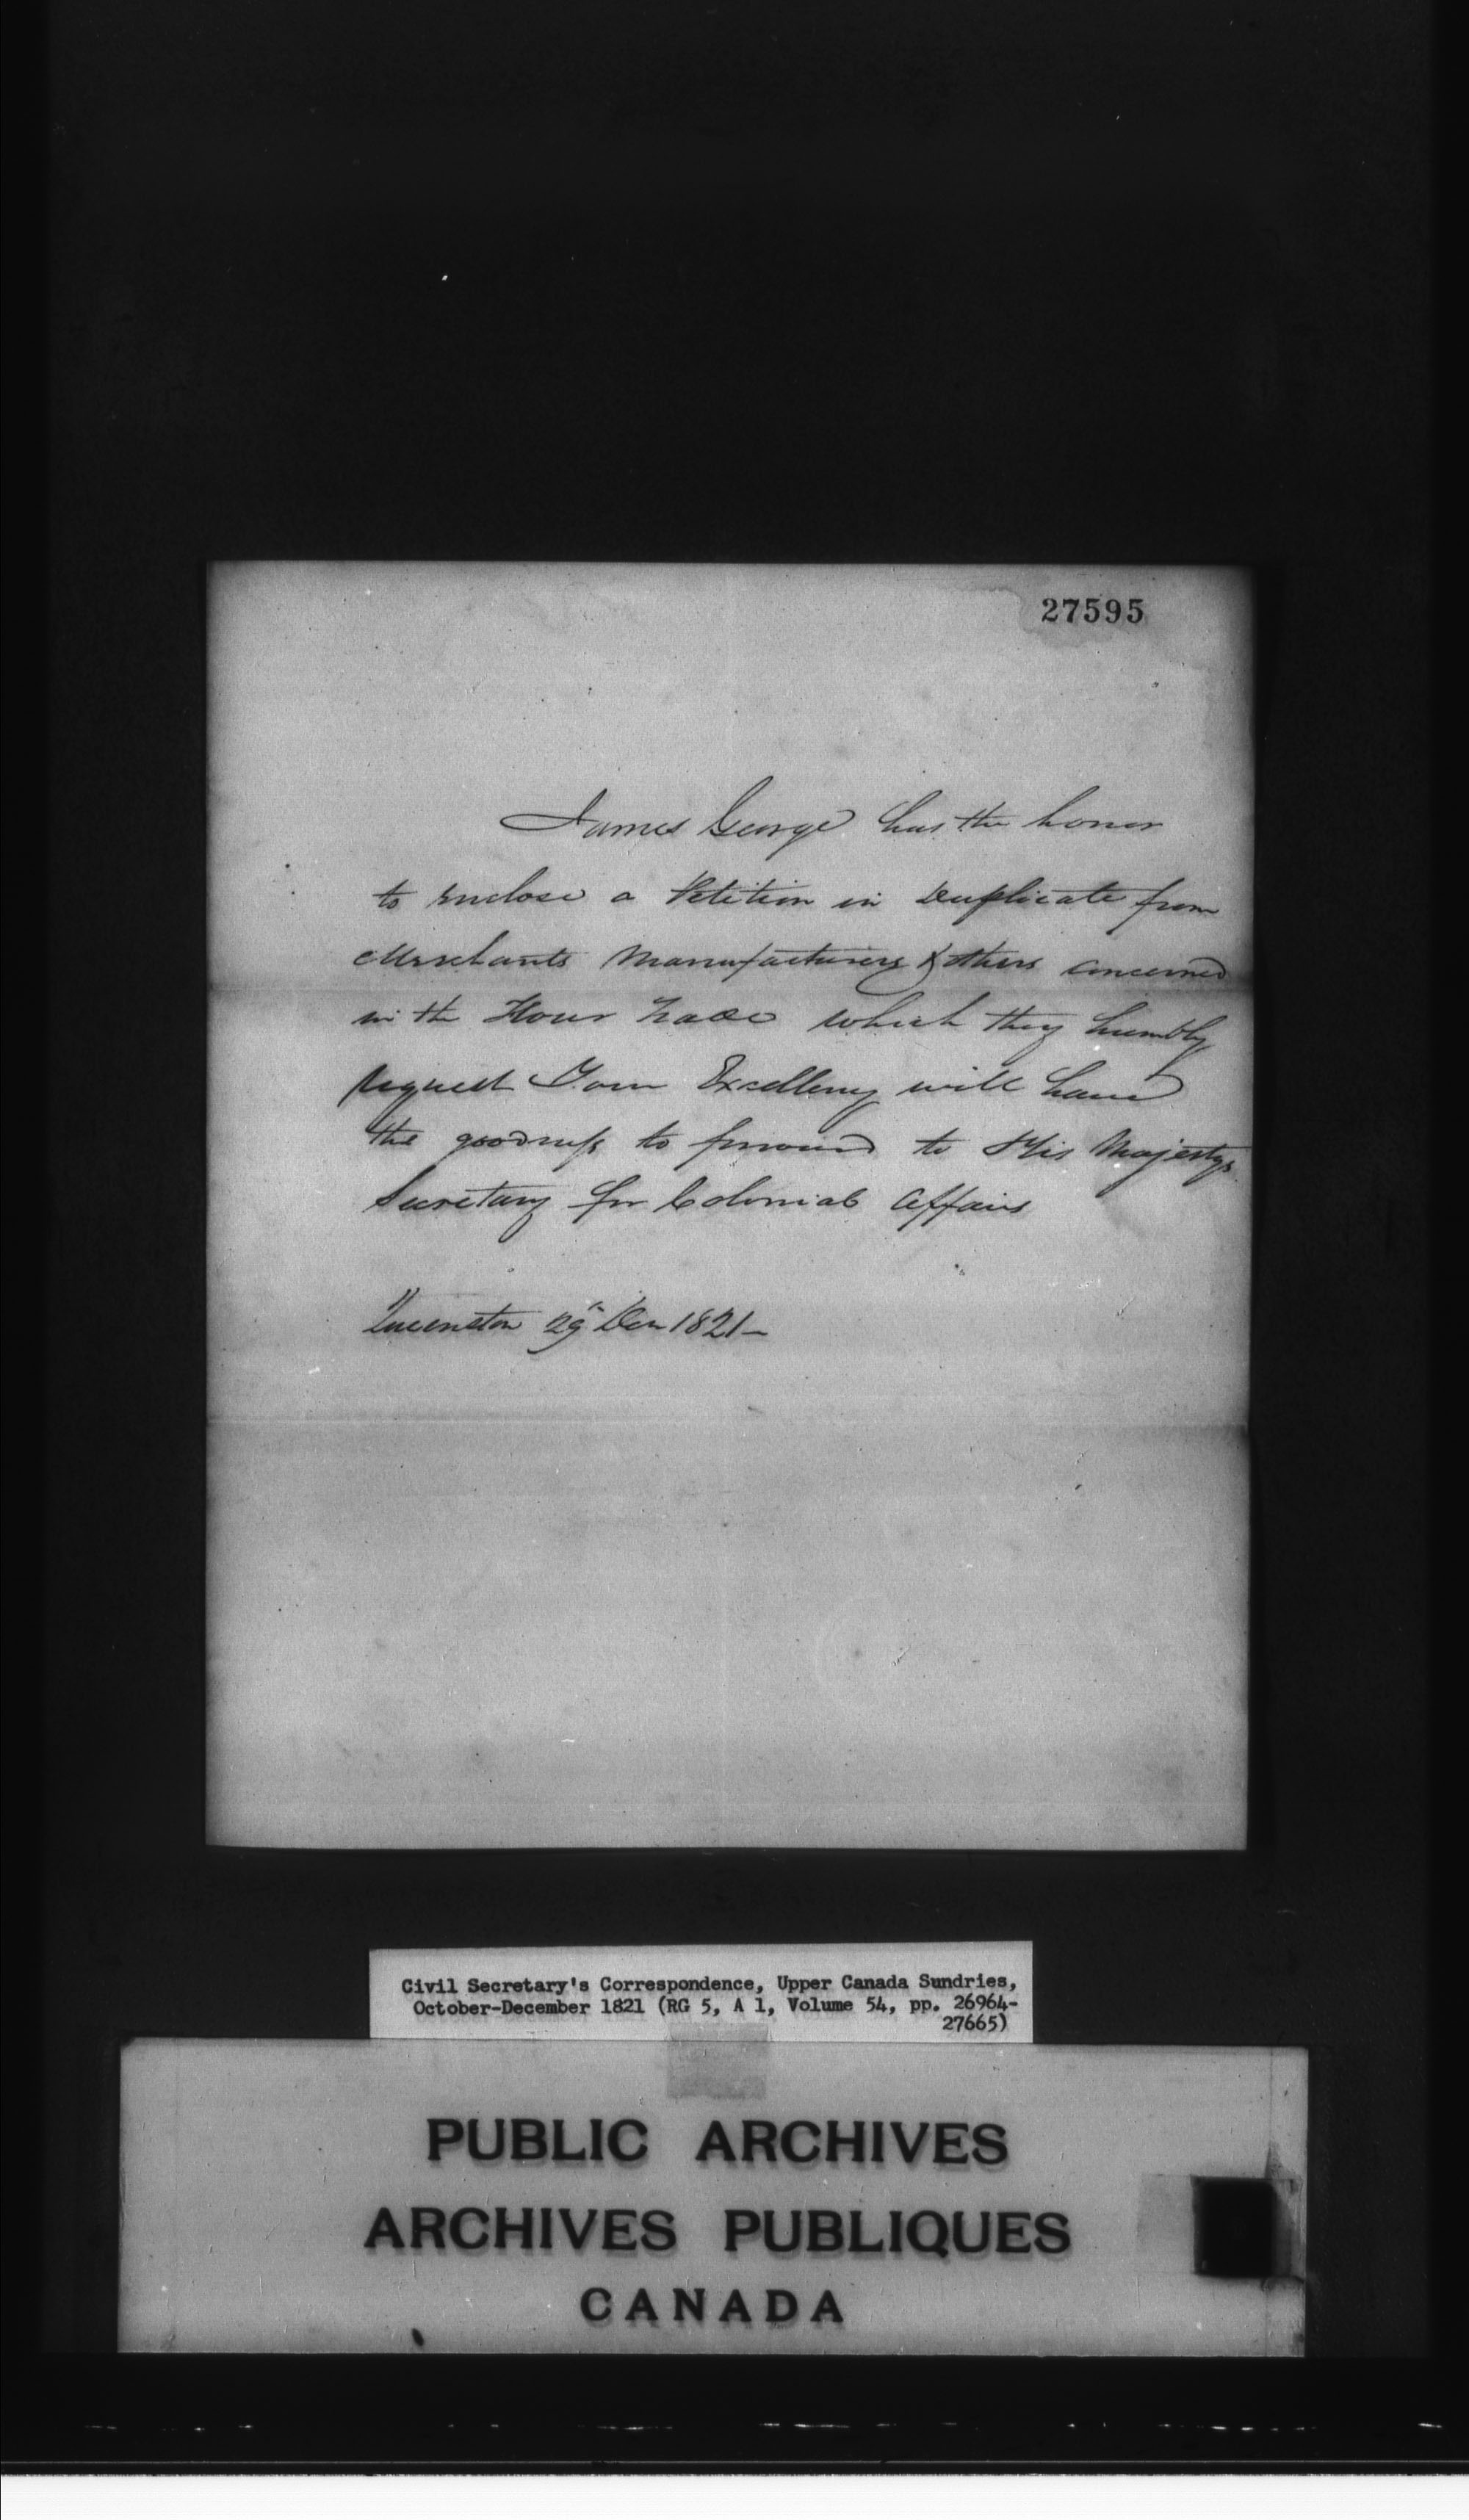 27595
James George has the honor
to enclose a Petition in Duplicate from
Merchants Manufacturers & others concerned
in the Flour Trade which they humbly
request Your Excellency will have
the goodness to forward to His Majestys
Secretary for Colonial Affairs
Queenston 29th Decr 1821 —
Civil Secretary's Correspondence, Upper Canada Sundries,
October-December 1821 (RG 5, A 1, Volume 54, pp. 26964-
27665)
PUBLIC ARCHIVES
ARCHIVES PUBLIQUES
CANADA